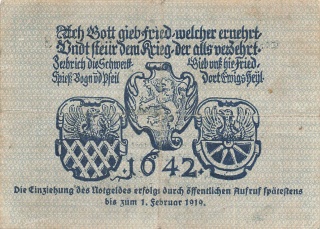 Ach Gott gieb Fried, welcher ernehrt
Undt steür dem Krieg, der alls verzehrt.
Zerbrich die Schwert
Spieß Bogn üd Pfeil
Gieb uns hie Fried,
Dort Ewigs Heyl.
1642.
Die Einziehung des Notgeldes erfolgt durch öffentlichen Aufruf spätestens
bis zum 1. Februar 1919.